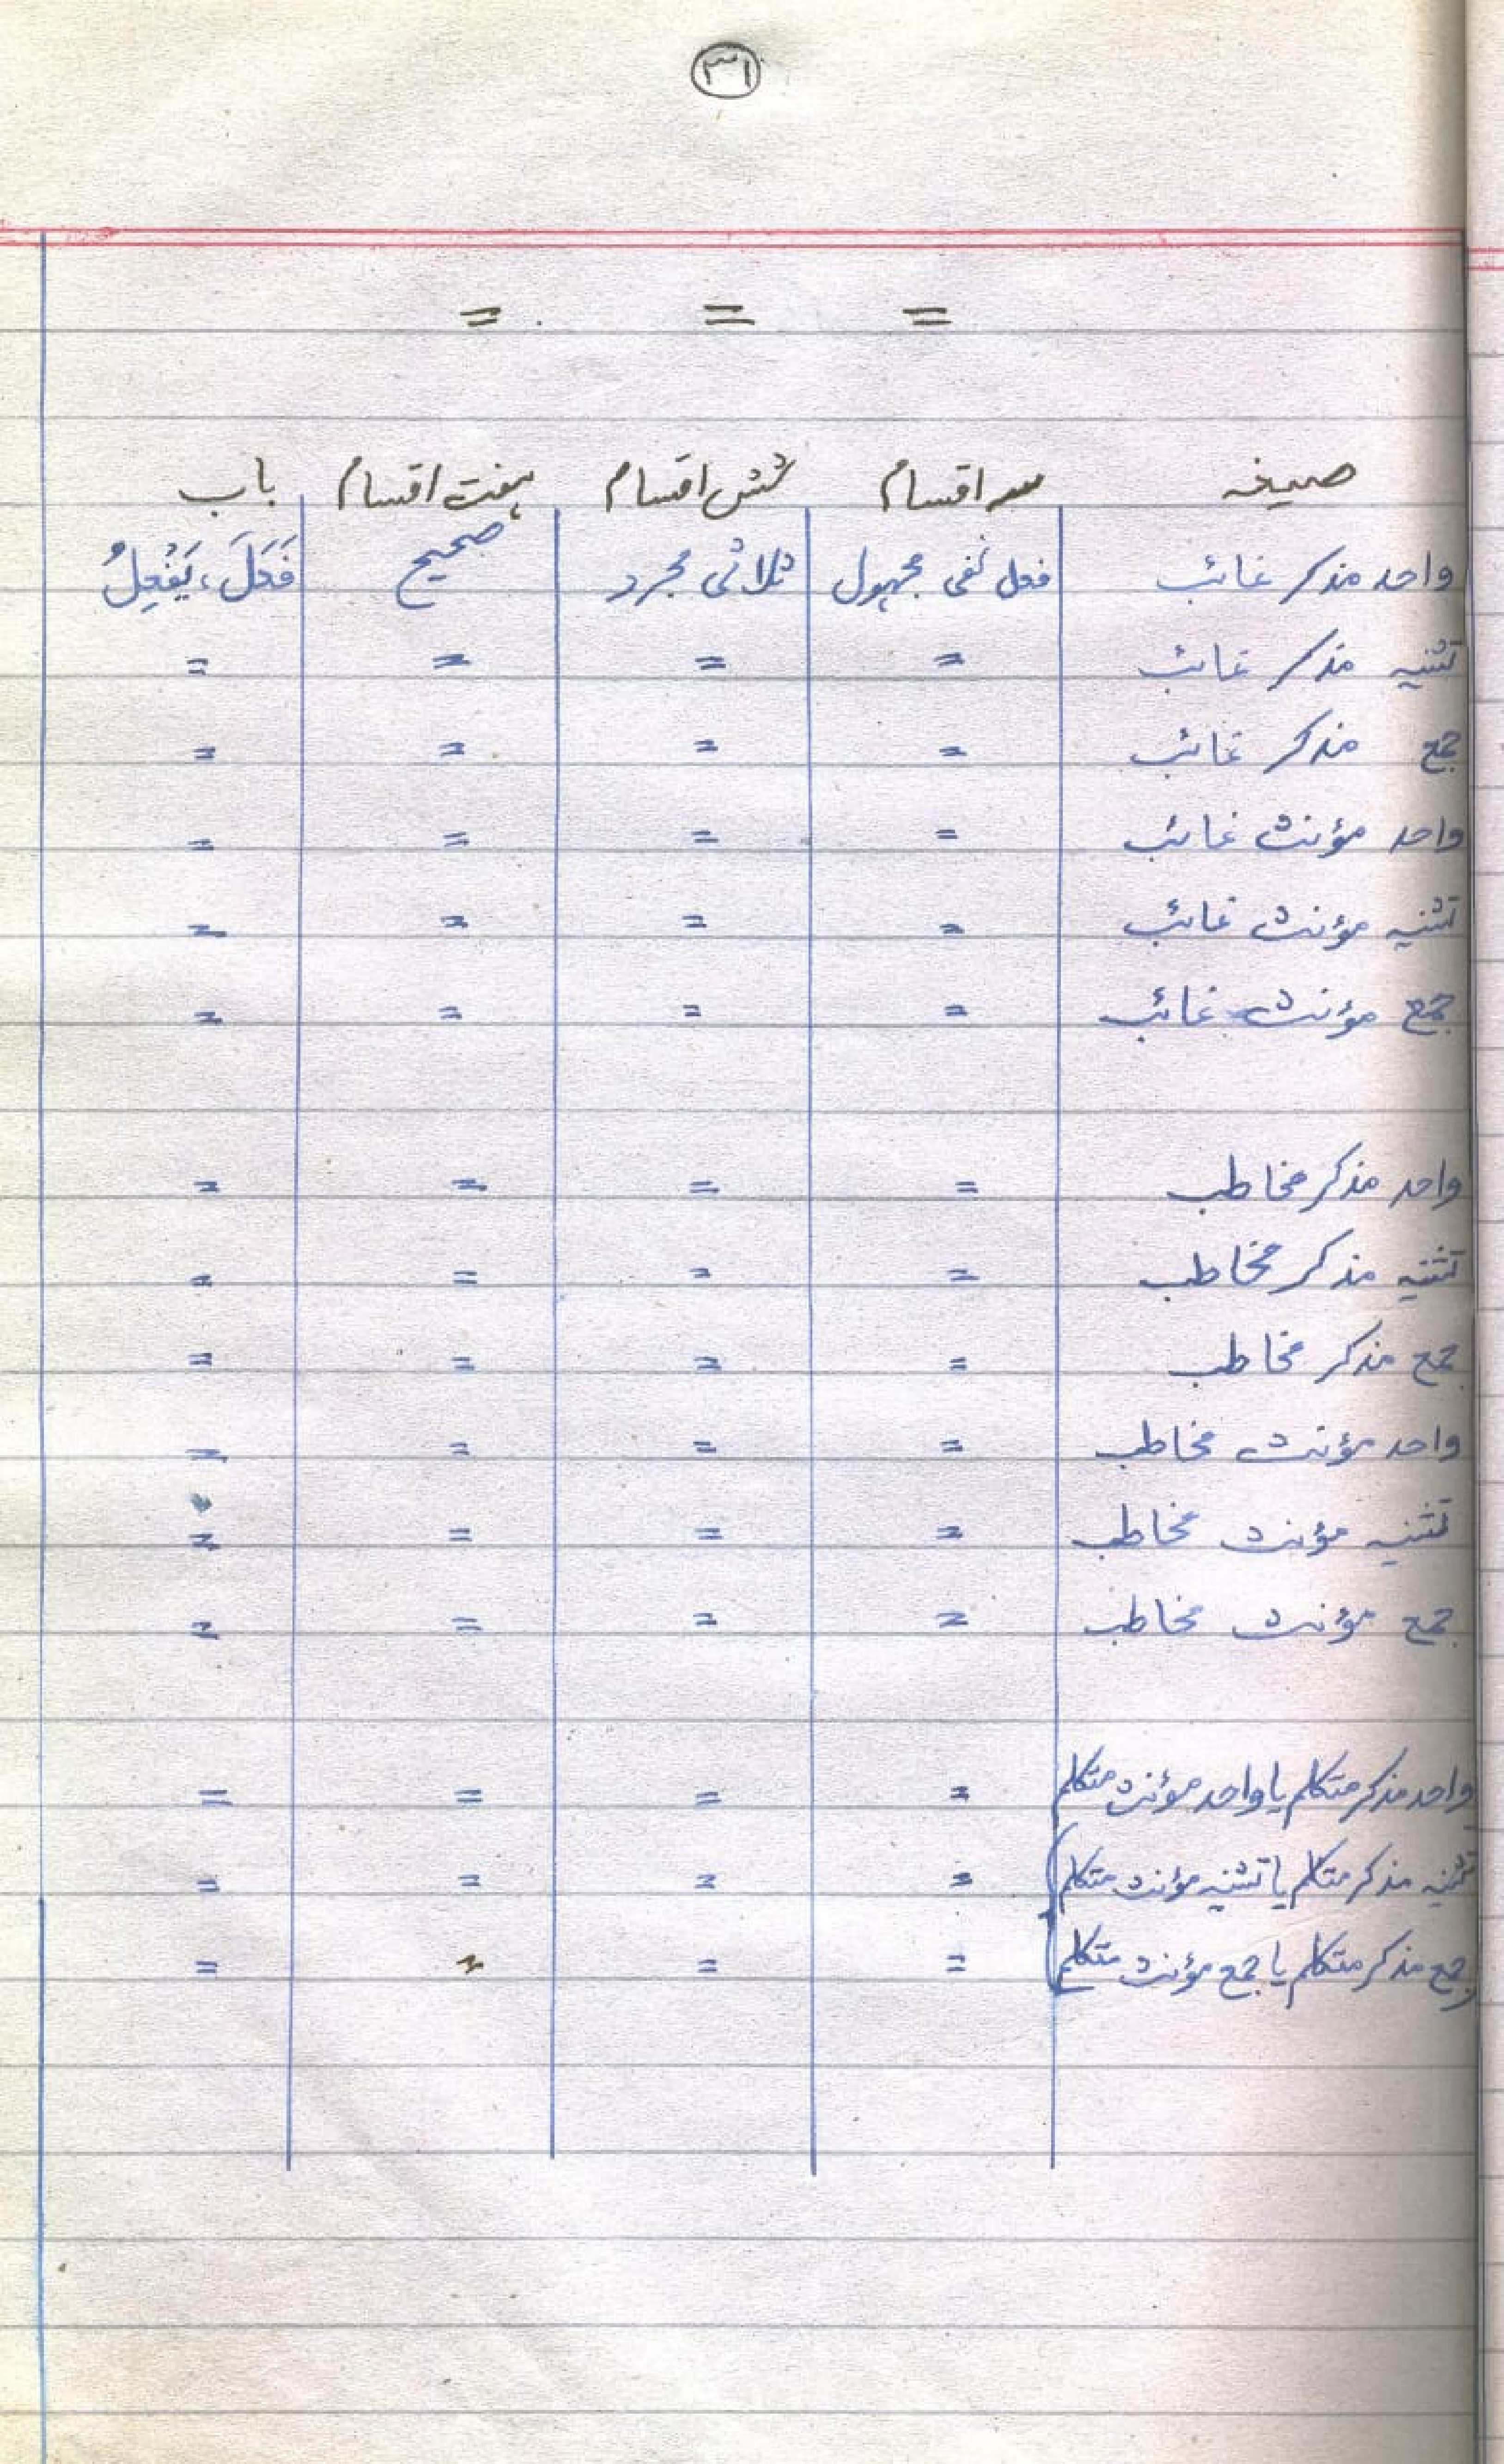 ۳۱
= = =
صیغہ سہ اقسام شش اقسام ہفت اقسام باب
واحد مذکر غائب فعل نفی مجہول ثلاثی مجرد صحیح فَعَلَ، یَفْعِلُ
تثنیہ مذکر غائب = = = =
جمع مذکر غائب = = = =
واحد مؤنث غائب = = = =
تثنیہ مؤنث غائب = = = =
جمع مؤنث غائب = = = =
واحد مذکر مخاطب = = = =
تثنیہ مذکر مخاطب = = = =
جمع مذکر مخاطب = = = =
واحد مؤنث مخاطب = = = =
تثنیہ مؤنث مخاطب = = = =
جمع مؤنث مخاطب = = = =
واحد مذکر متکلم یا واحد مؤنث متکلم = = = =
تثنیہ مذکر متکلم یا تثنیہ مؤنث متکلم = = = =
جمع مذکر متکلم یا جمع مؤنث متکلم = = = =